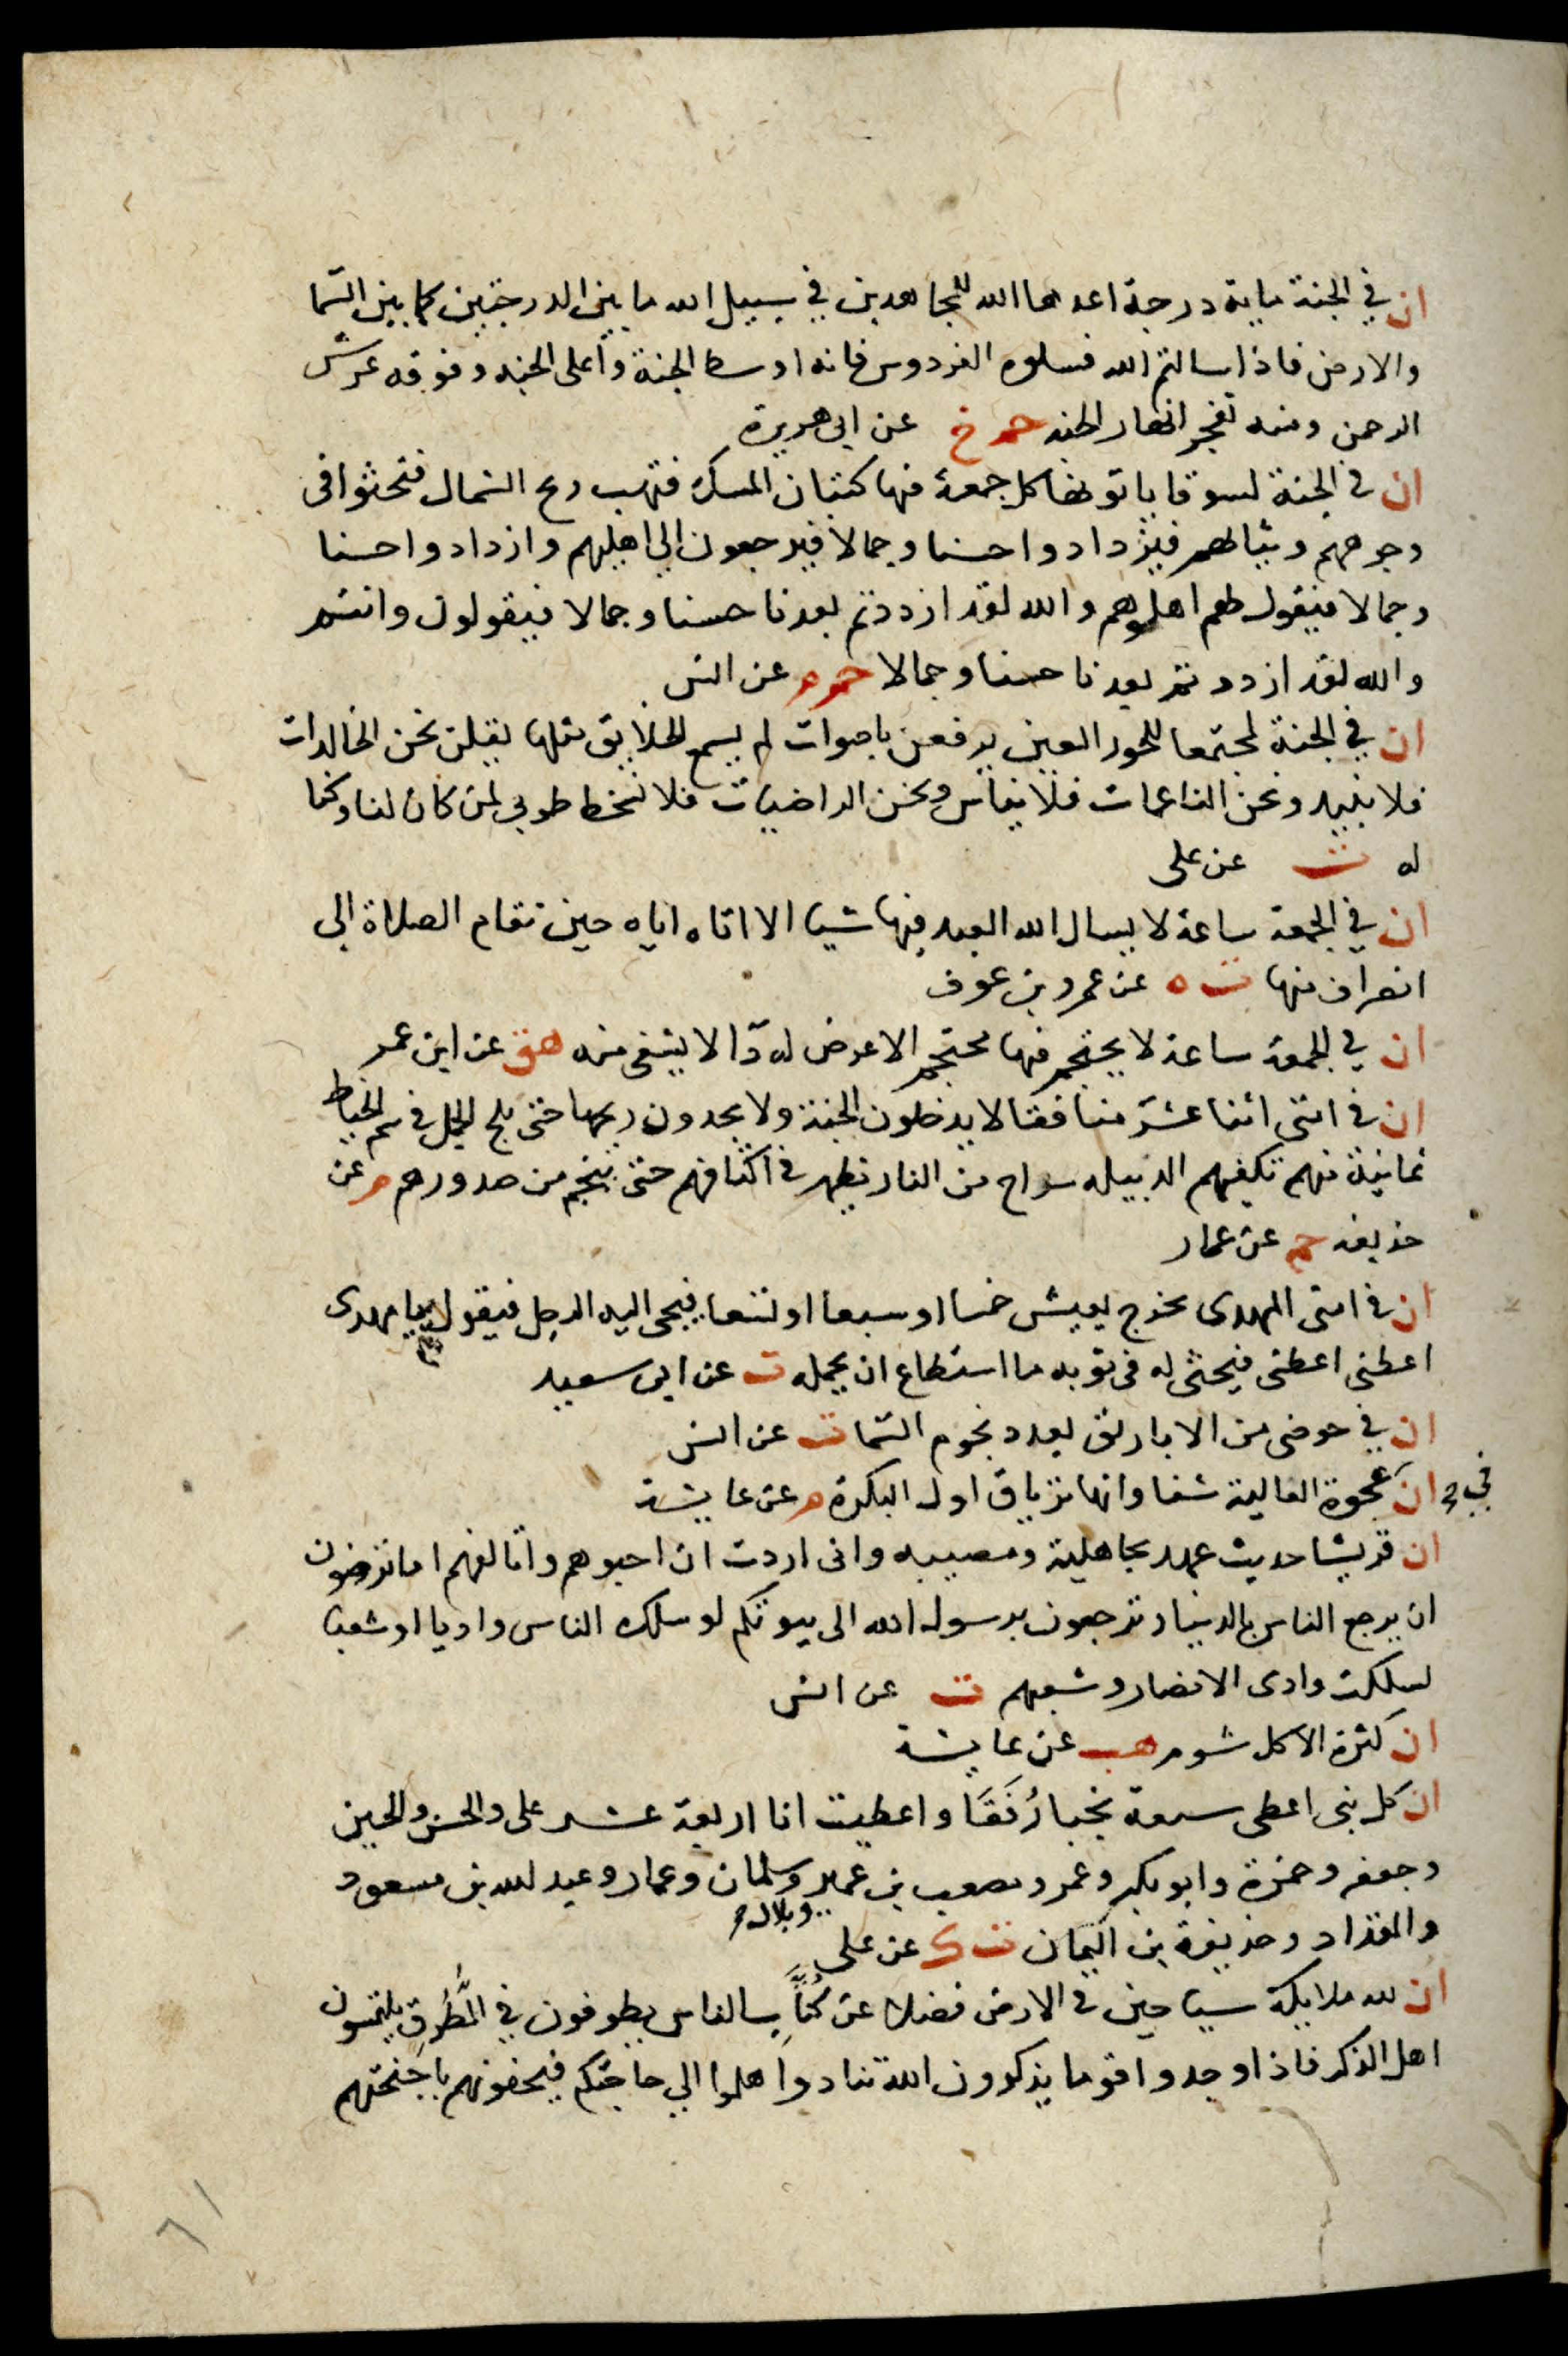 ان في الجنة ماية درجة اعدها الله للمجاهدين في سبيل الله ما بين الدرجتين كما بين السما
والارض فاذا سالتم الله فسلوه الفردوس فانه اوسط الجنة وأعلى الجنه وفوقه عرش
الرحمن ومنه تفجر انهار الجنه حم خ عن ابى هريرة
ان في الجنة لسوقا ياتونها كل جمعة فيها كثبان المسك فتهب ريح الشمال فتحثوا فى
وجوههم وثيابهم فيزدادوا حسنا وجمالا فيرجعون الى اهليهم وازدادوا حسنا
وجمالا فيقول لهم اهلوهم والله لقد ازددتم بعدنا حسنا وجمالا فيقولون وانتم
والله لقد ازددتم بعدنا حسنا وجمالا حم م عن انس
ان في الجنة لمجتمعا للحور العين يرفعن باصوات لم يسمع الخلايق مثلها يقلن نحن الخالدات
فلا نبيد ونحن الناعمات فلا نباس ونحن الراضيات فلا نسخط طوبى لمن كان لنا وكنا
له ت عن على
ان في الجمعة ساعة لا يسال الله العبد فيها شيا الا اتاه اياه حين تقام الصلاة الى
انصراف منها ت ه عن عمرو بن عوف
ان في الجمعة ساعة لا يحتجم فيها محتجم الا عرض له دآ لا يشفى منه هق عن ابن عمر
ان في امتى اثنا عشر منافقا لا يدخلون الجنة ولا يجدون ريحها حتى يلج الجمل في سم الخياط
ثمانية منهم تكفيهم الدبيله سراج من النار يظهر في اكتافهم حتى ينجم من صدورهم م عن
حذيفه حم عن عمار
ان فى امتى المهدى يخرج يعيش خمسا او سبعا او تسعا فيجى اليه الرجل فيقول يا مهدى
اعطنى اعطنى فيحثى له فى ثوبه ما استطاع ان يحمله ت عن ابى سعيد
ان في حوضى من الاباريق بعدد نجوم السما ت عن انس
ان في عجوة العالية شفا وانها ترياق اول البكرة م عن عايشة
ان قريشا حديث عهد بجاهلية ومصيبه وانى اردت ان احبوهم واتالفهم اما ترضون
ان يرجع الناس بالدنيا وترجعون برسول الله الى بيوتكم لو سلك الناس واديا او شعبا
لسلكت وادى الانصار وشعبهم ت عن انس
ان كثرة الاكل شوم هب عن عايشة
ان كل نبى اعطى سبعة نجبا رُفَقَا واعطيت انا اربعة عشر على والحسن والحسين
وجعفر وحمزة وابو بكر وعمر ومصعب بن عمير وبلال وسلمان وعمار وعبد الله بن مسعود
والمقداد وحذيفة بن اليمان ت ك عن على
ان لله ملايكة سياحين في الارض فضلا عن كُتَّاب الناس يطوفون في الطُّرُقِ يلتمسون
اهل الذكر فاذا وجدوا قوما يذكرون الله تنادوا هلموا الى حاجتكم فيحفونهم باجنحتهم